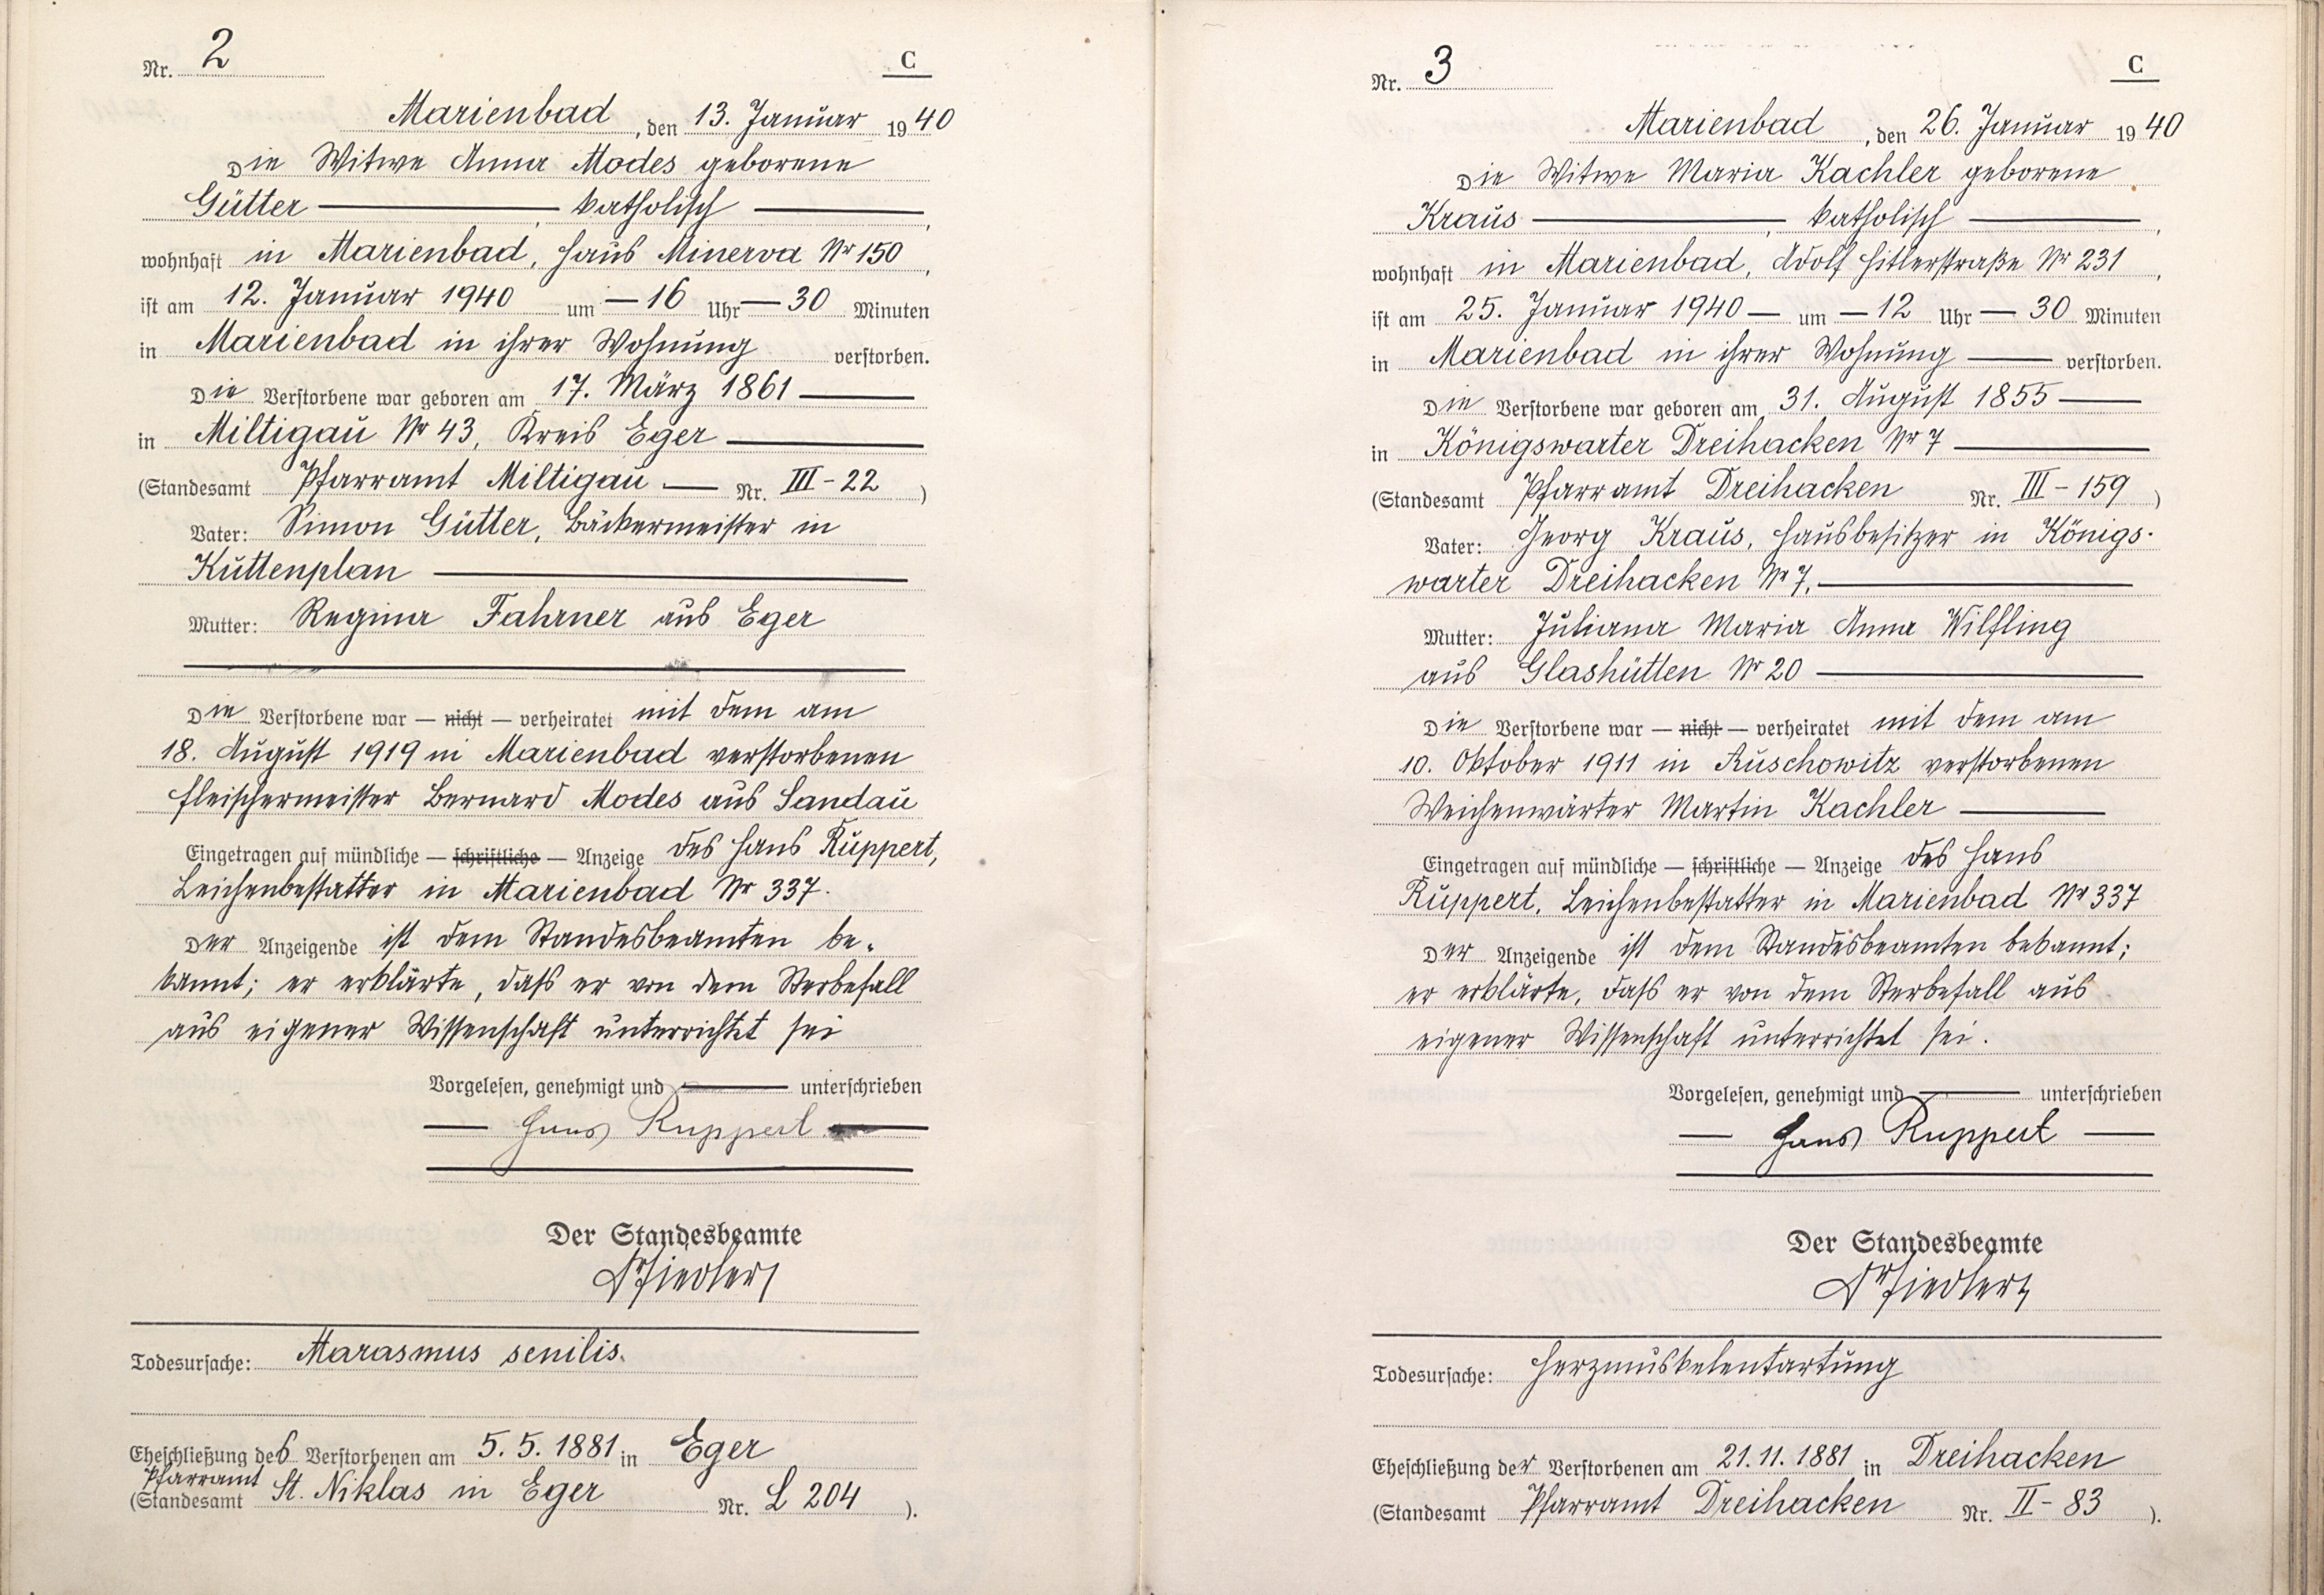 Nr. 2
C
Marienbad, den 13. Januar 1940
Die Witwe Anna Modes geborene
Gütter — katholisch —,
wohnhaft in Marienbad, Haus Minerva Nr 150,
ist am 12. Januar 1940 um — 16 Uhr — 30 Minuten
in Marienbad in ihrer Wohnung verstorben.
Die Verstorbene war geboren am 17. März 1861 —
in Miltigau Nr 43, Kreis Eger —
(Standesamt Pfarramt Miltigau — Nr. III - 22)
Vater: Simon Gütter, Bäckermeister in
Kuttenplan —
Mutter: Regina Fahrner aus Eger
Die Verstorbene war — nicht — verheiratet mit dem am
18. August 1919 in Marienbad verstorbenen
Fleischermeister Bernard Modes aus Sandau
Eingetragen auf mündliche — schriftliche — Anzeige des Hans Ruppert,
Leichenbestatter in Marienbad Nr 337.
Der Anzeigende ist dem Standesbeamten be-
kannt; er erklärte, daß er von dem Sterbefall
aus eigener Wissenschaft unterrichtet sei
Vorgelesen, genehmigt und — unterschrieben
— Hans Ruppert —
Der Standesbeamte
Dr Fiedler
Todesursache: Marasmus senilis.
Eheschließung des Verstorbenen am 5. 5. 1881 in Eger
Pfarramt
(Standesamt St. Niklas in Eger Nr. L 204).
Nr. 3
C
Marienbad, den 26. Januar 1940
Die Witwe Maria Kachler geborene
Kraus —, katholisch —,
wohnhaft in Marienbad, Adolf Hitlerstraße Nr 231,
ist am 25. Januar 1940 — um — 12 Uhr — 30 Minuten
in Marienbad in ihrer Wohnung — verstorben.
Die Verstorbene war geboren am 31. August 1855 —
in Königswarter Dreihacken Nr 7 —
(Standesamt Pfarramt Dreihacken Nr. III - 159)
Vater: Georg Kraus, Hausbesitzer in Königs-
warter Dreihacken Nr 7. —
Mutter: Juliana Maria Anna Wilfling
aus Glashütten Nr 20 —
Die Verstorbene war — nicht — verheiratet mit dem am
10. Oktober 1911 in Auschowitz verstorbenen
Weichenwärter Martin Kachler —
Eingetragen auf mündliche — schriftliche — Anzeige des Hans
Ruppert, Leichenbestatter in Marienbad Nr 337
Der Anzeigende ist dem Standesbeamten bekannt;
er erklärte, daß er von dem Sterbefall aus
eigener Wissenschaft unterrichtet sei.
Vorgelesen, genehmigt und — unterschrieben
— Hans Ruppert —
Der Standesbeamte
Dr Fiedler
Todesursache: Herzmuskelentartung
Eheschließung der Verstorbenen am 21. 11. 1881 in Dreihacken
(Standesamt Pfarramt Dreihacken Nr. II - 83).